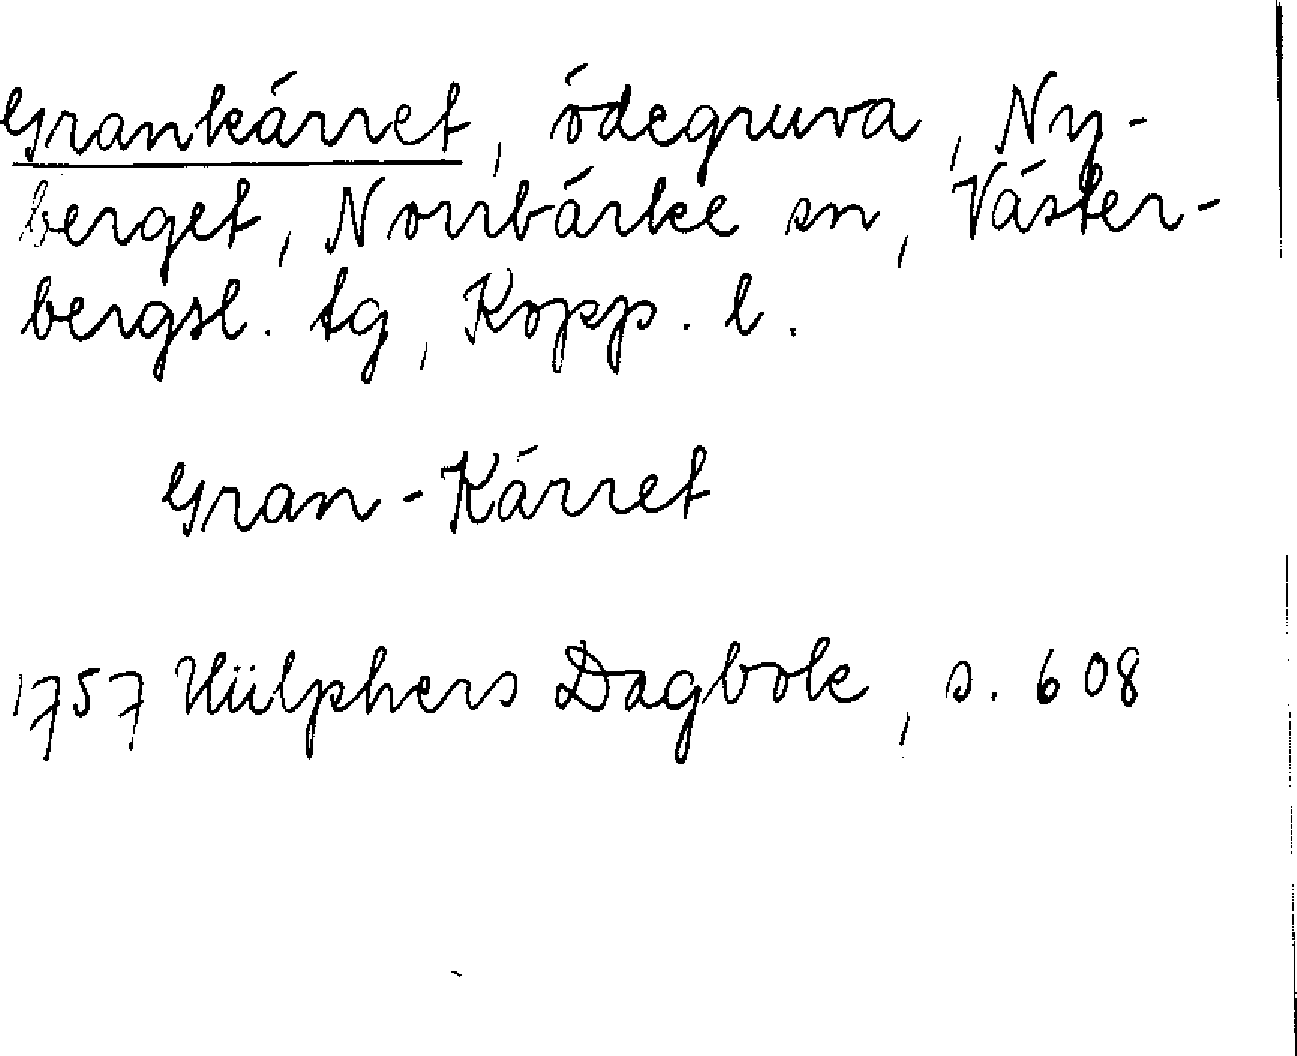 Grankärret, ödegruva, Ny-
berget, Norrbärke sn, Väster-
bergsl. tg, Kopp. l.
Gran-Kärret
1757 Hülphers Dagbok, s. 608